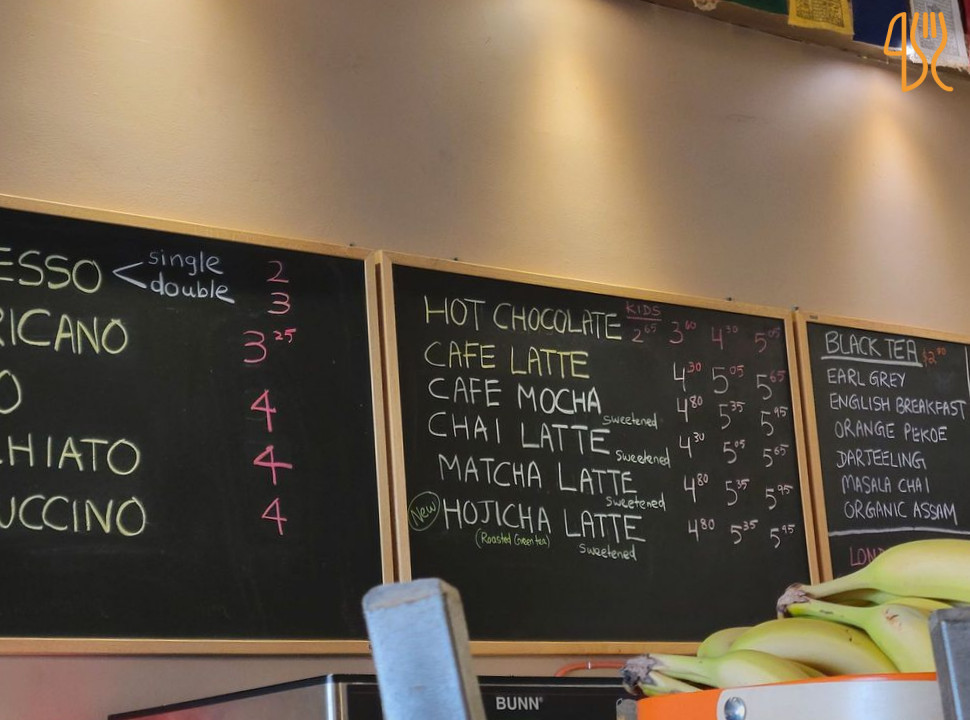 ESSO < single 2
double 3
RICANO 3 25
O 4
CHIATO 4
UCCINO 4
HOT CHOCOLATE KIDS 2 65 3 60 4 30 5 05
CAFE LATTE 4 30 5 05 5 65
CAFE MOCHA 4 80 5 35 5 95
sweetened
CHAI LATTE 4 30 5 05 5 65
sweetened
MATCHA LATTE 4 80 5 35 5 95
sweetened
New HOJICHA LATTE 4 80 5 35 5 95
(Roasted Green tea) sweetened
BLACK TEA
EARL GREY
ENGLISH BREAKFAST
ORANGE PEKOE
DARJEELING
MASALA CHAI
ORGANIC ASSAM
LOND
BUNN